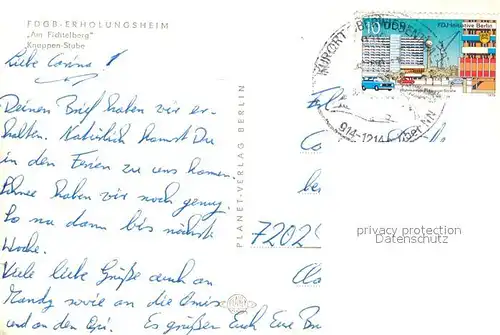 FDGB-ERHOLUNGSHEIM
„Am Fichtelberg"
Knappen-Stube
Liebe Corina!
Deinen Brief haben wir er-
halten. Natürlich kannst Du
in den Ferien zu uns kommen.
Schnee haben wir noch genug.
So nu dann bis nächste
Woche.
Viele liebe Grüße auch an
Mandy sowie an die Omis
und an den Opi. Es grüßen Euch Eure
PLANET-VERLAG BERLIN
10
FDJ-Initiative Berlin
KURORT
9141214
7202
privacy protection
Datenschutz